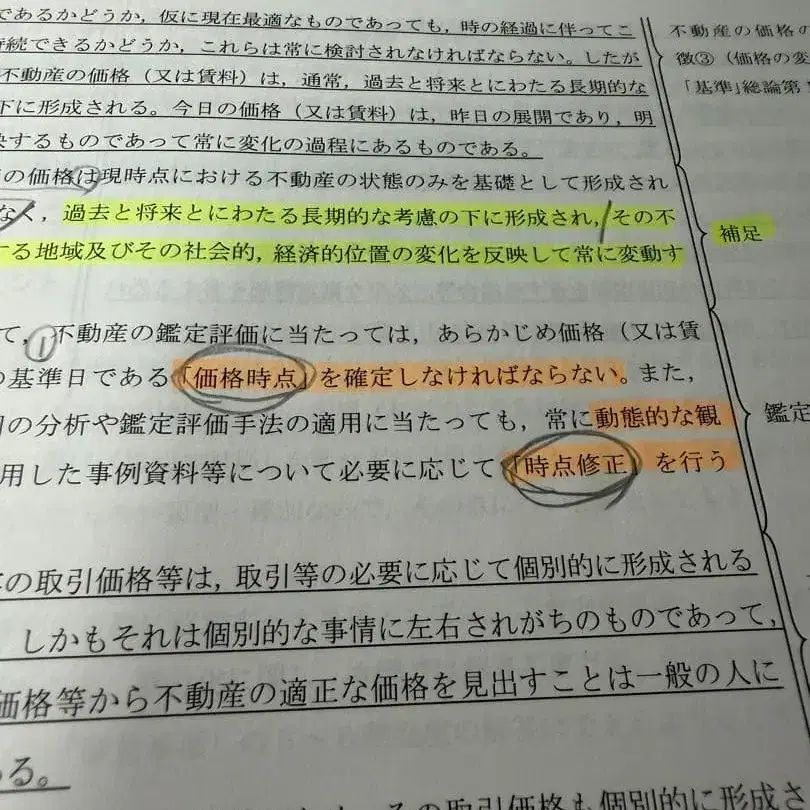 であるかどうか，仮に現在最適なものであっても，時の経過に伴ってこ
持続できるかどうか，これらは常に検討されなければならない。したが
不動産の価格（又は賃料）は，通常，過去と将来とにわたる長期的な
下に形成される。今日の価格（又は賃料）は，昨日の展開であり，明
するものであって常に変化の過程にあるものである。
の価格は現時点における不動産の状態のみを基礎として形成され
なく，過去と将来とにわたる長期的な考慮の下に形成され，その不
する地域及びその社会的，経済的位置の変化を反映して常に変動す
て，① 不動産の鑑定評価に当たっては，あらかじめ価格（又は賃
の基準日である「価格時点」を確定しなければならない。また，
の分析や鑑定評価手法の適用に当たっても，常に動態的な観
用した事例資料等について必要に応じて「時点修正」を行う
の取引価格等は，取引等の必要に応じて個別的に形成される
しかもそれは個別的な事情に左右されがちのものであって，
価格等から不動産の適正な価格を見出すことは一般の人に
る。
の取引価格も個別的に形成さ
不動産の価格の
徴③（価格の変
「基準」総論第1
補足
鑑定